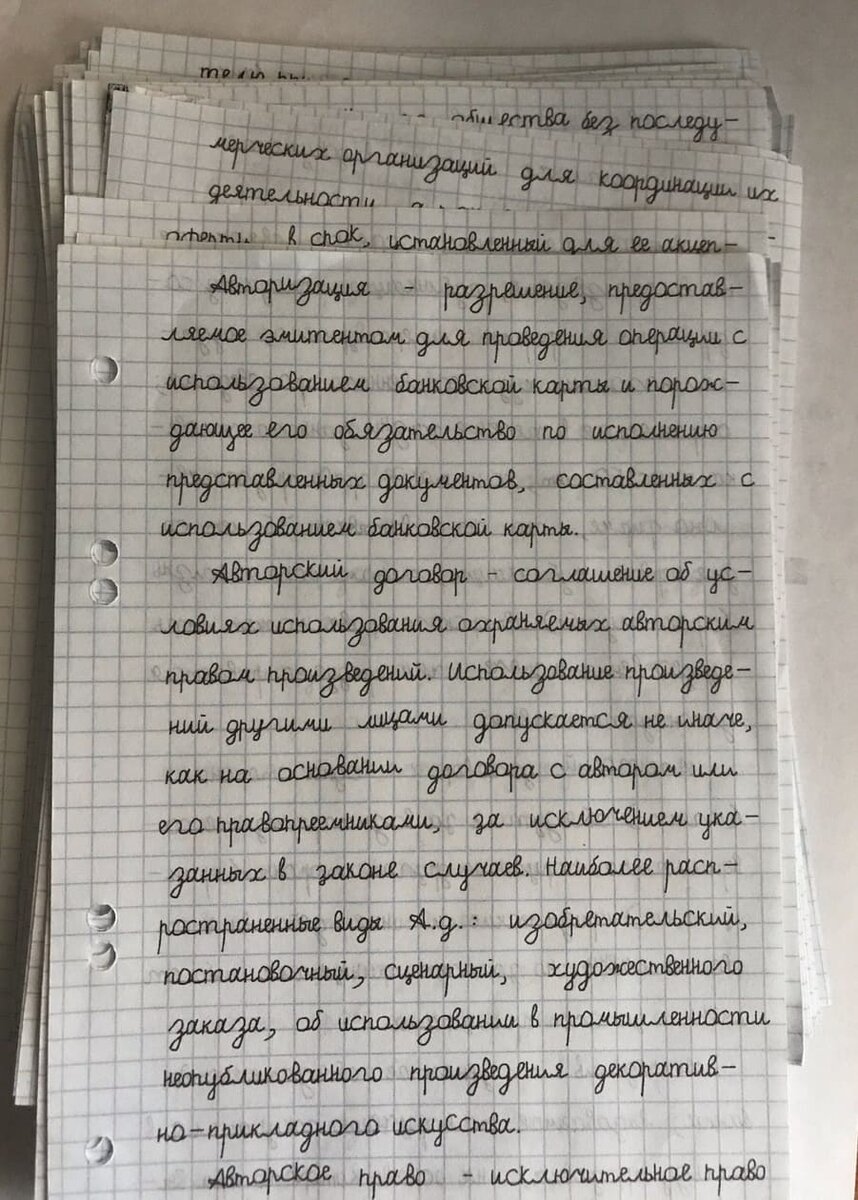 общества без последу-
мерческих организаций для координации их
деятельности
оферты в срок, установленный для ее акцеп-
Авторизация - разрешение, предостав-
ляемое эмитентом для проведения операции с
использованием банковской карты и порож-
дающее его обязательство по исполнению
представленных документов, составленных с
использованием банковской карты.
Авторский договор - соглашение об ус-
ловиях использования охраняемых авторским
правом произведений. Использование произведе-
ний другими лицами допускается не иначе,
как на основании договора с автором или
его правопреемниками, за исключением ука-
занных в законе случаев. Наиболее расп-
ространенные виды А.д.: изобретательский,
постановочный, сценарный, художественного
заказа, об использовании в промышленности
неопубликованного произведения декоратив-
но-прикладного искусства.
Авторское право - исключительное право